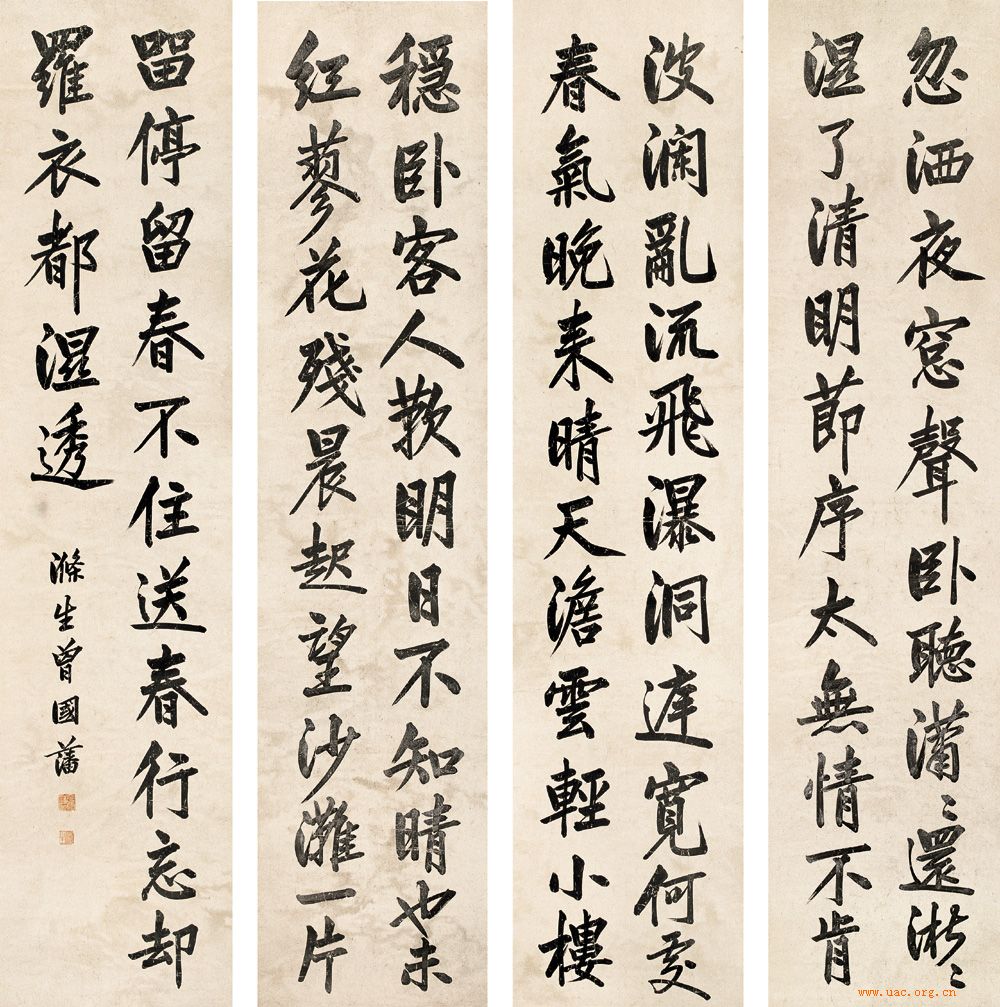 忽洒夜窓聲卧聽瀟〻還淅〻
濕了清明莭序太無情不肯
波瀾亂流飛瀑洞庭寬何處
春氣晚来晴天澹雲輕小樓
穩卧客人歎明日不知晴也未
紅蓼花殘晨起望沙灘一片
畱停留春不住送春行忘却
羅衣都濕透
滌生曾國藩
www.uac.org.cn